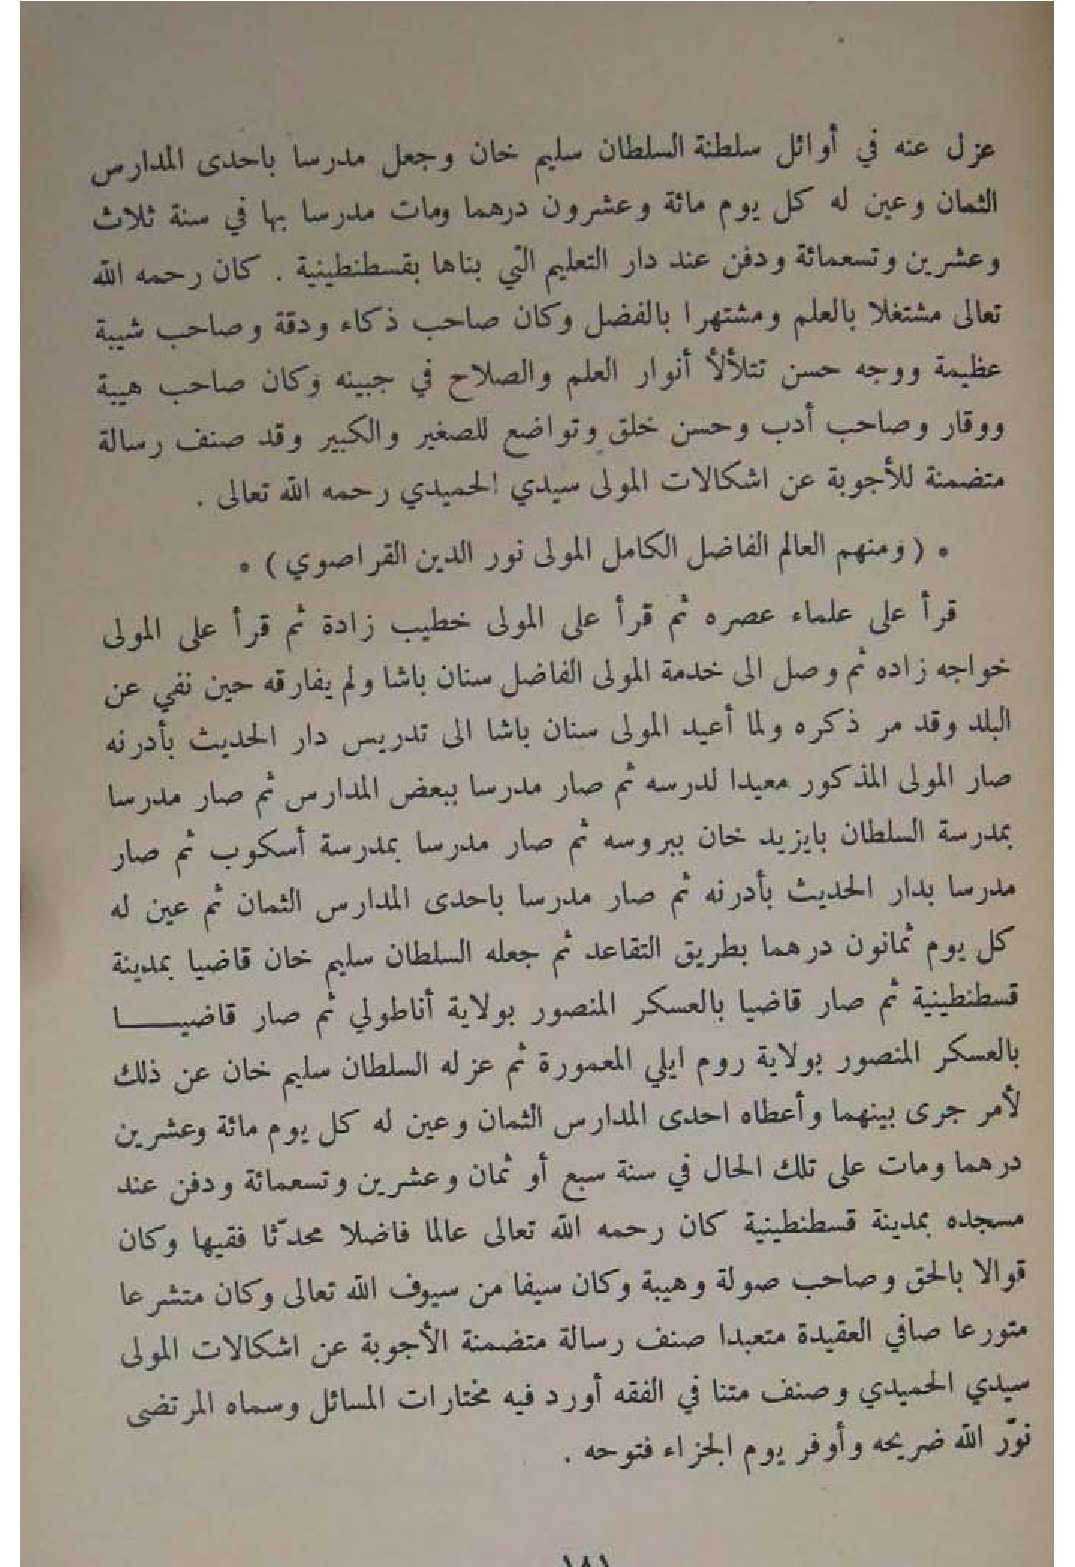 عزل عنه في أوائل سلطنة السلطان سليم خان وجعل مدرسا باحدى المدارس
الثمان وعين له كل يوم مائة وعشرون درهما ومات مدرسا بها في سنة ثلاث
وعشرين وتسعمائة ودفن عند دار التعليم التي بناها بقسطنطينية . كان رحمه الله
تعالى مشتغلا بالعلم ومشتهرا بالفضل وكان صاحب ذكاء ودقة وصاحب شيبة
عظيمة ووجه حسن تتلألأ أنوار العلم والصلاح في جبينه وكان صاحب هيبة
ووقار وصاحب أدب وحسن خلق وتواضع للصغير والكبير وقد صنف رسالة
متضمنة للأجوبة عن اشكالات المولى سيدي الحميدي رحمه الله تعالى .
• ( ومنهم العالم الفاضل الكامل المولى نور الدين القراصوي ) •
قرأ على علماء عصره ثم قرأ على المولى خطيب زادة ثم قرأ على المولى
خواجه زاده ثم وصل الى خدمة المولى الفاضل سنان باشا ولم يفارقه حين نفي عن
البلد وقد مر ذكره ولما أعيد المولى سنان باشا الى تدريس دار الحديث بأدرنه
صار المولى المذكور معيدا لدرسه ثم صار مدرسا ببعض المدارس ثم صار مدرسا
بمدرسة السلطان بايزيد خان ببروسه ثم صار مدرسا بمدرسة أسكوب ثم صار
مدرسا بدار الحديث بأدرنه ثم صار مدرسا باحدى المدارس الثمان ثم عين له
كل يوم ثمانون درهما بطريق التقاعد ثم جعله السلطان سليم خان قاضيا بمدينة
قسطنطينية ثم صار قاضيا بالعسكر المنصور بولاية أناطولي ثم صار قاضيــــا
بالعسكر المنصور بولاية روم ايلي المعمورة ثم عزله السلطان سليم خان عن ذلك
لأمر جرى بينهما وأعطاه احدى المدارس الثمان وعين له كل يوم مائة وعشرين
درهما ومات على تلك الحال في سنة سبع أو ثمان وعشرين وتسعمائة ودفن عند
مسجده بمدينة قسطنطينية كان رحمه الله تعالى عالما فاضلا محدّثا فقيها وكان
قوالا بالحق وصاحب صولة وهيبة وكان سيفا من سيوف الله تعالى وكان متشرعا
متورعا صافي العقيدة متعبدا صنف رسالة متضمنة الأجوبة عن اشكالات المولى
سيدي الحميدي وصنف متنا في الفقه أورد فيه مختارات المسائل وسماه المرتضى
نوّر الله ضريحه وأوفر يوم الجزاء فتوحه .
١٨١